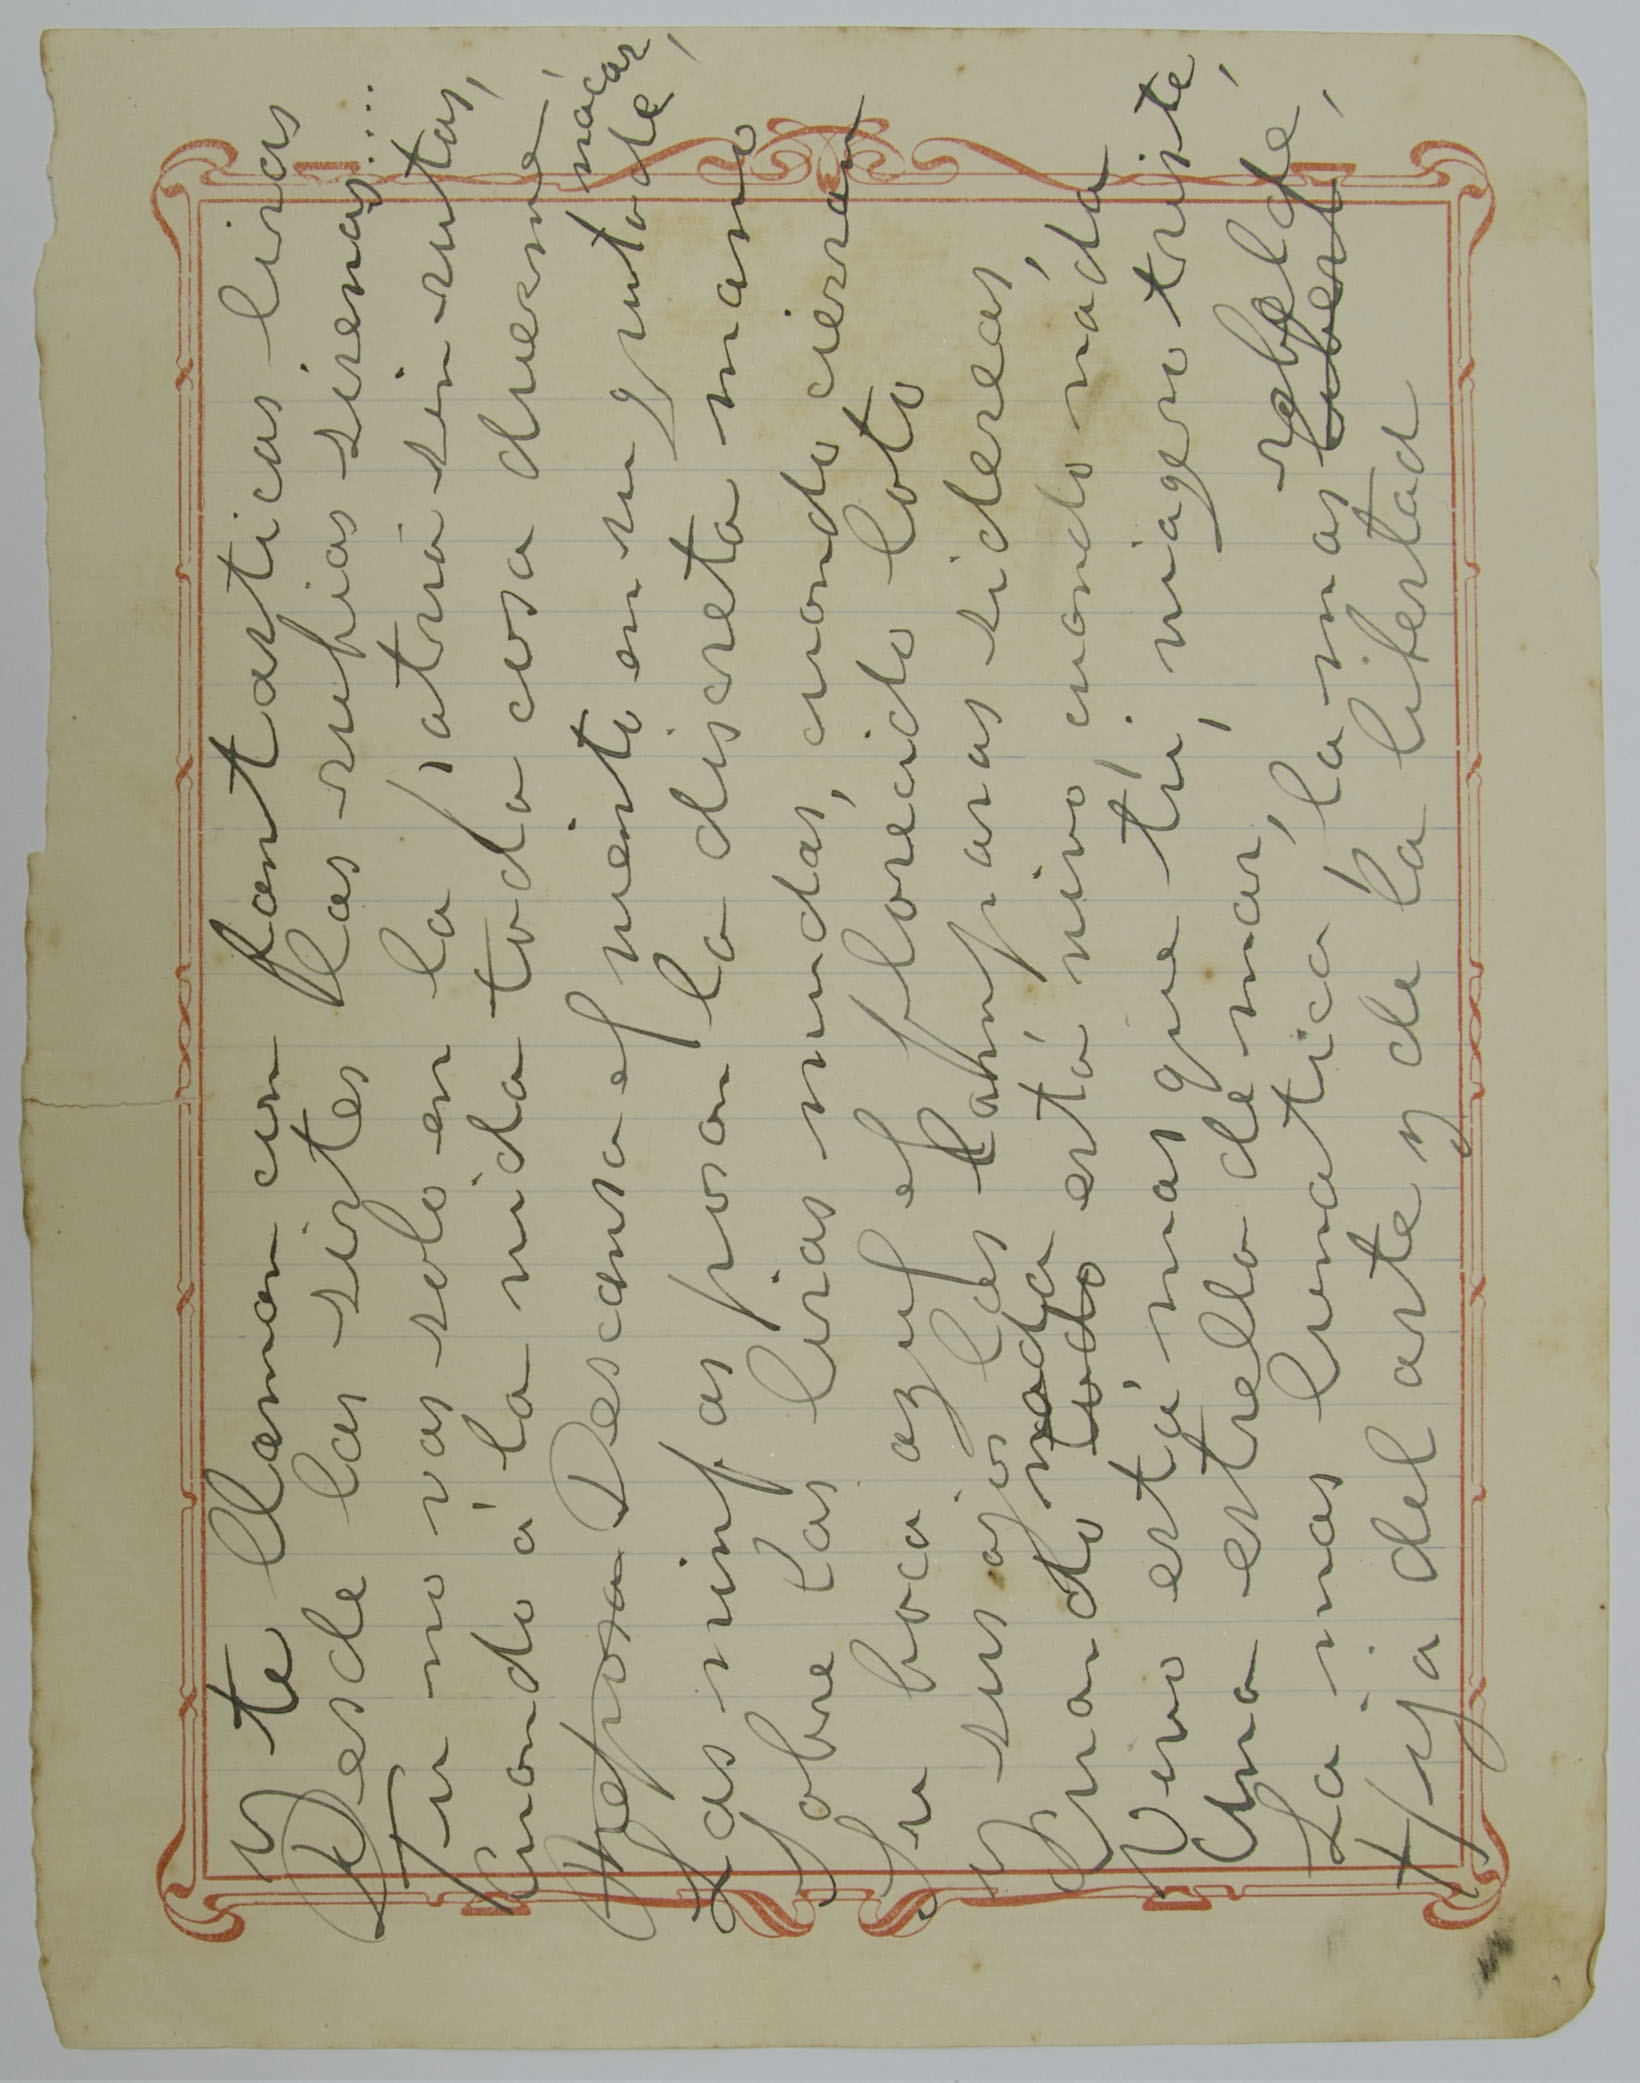 y te llaman con fantasticas liras
Desde las sirtes las rubias sirenas...
Tu no vas solo en la atria sin rutas,
Cuando á la vida toda cosa duerme
Reposa Descansa el viento en su gruta de nácar,
Las ninfas posan la discreta mano
Sobre las liras mudas, cuando cierran
Su boca azul el florecido loto
y sus ojos las lamparas sidereas,
Cuando todo nada está vivo, cuando náda
Vivo está mas que tú, viagero triste,
Una estrella de mar,
La mas lunatica, la mas liberta rebelde,
Hija del arte y de la libertad